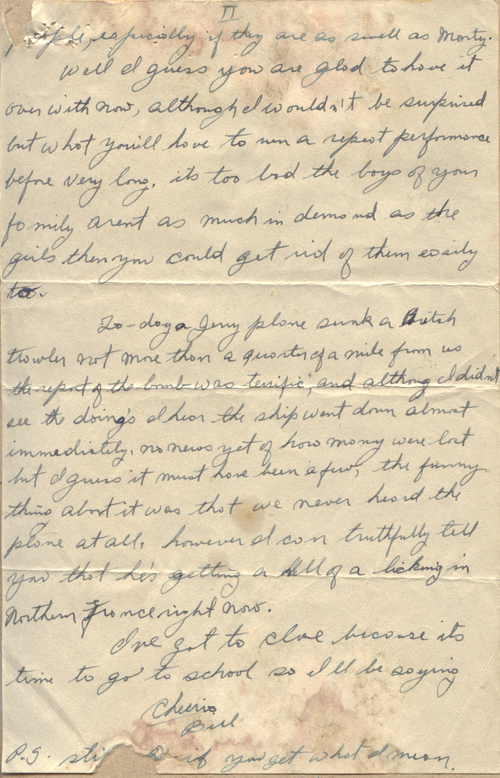 II
people, especially if they are as swell as Monty.
Well I guess you are glad to have it
over with now, although I wouldn't be surprised
but what you'll have to run a repeat performance
before very long, its too bad the boys of your
family arent as much in demand as the
girls then you could get rid of them easily
too.
To-day a Jerry plane sunk a Dutch
trawler not more than a quarter of a mile from us
the report of the bomb was terrific, and althoug I didn't
see the doing's I hear the ship went down almost
immediately. no news yet of how many were lost
but I guess it must have been a few, the funny
thing about it was that we never heard the
plane at all, however I can truthfully tell
you that he's getting a hell of a licking in
Northern France right now.
I've got to close because its
time to go to school so I'll be saying
Cheerio
Bill
P.S. if you get what I mean.